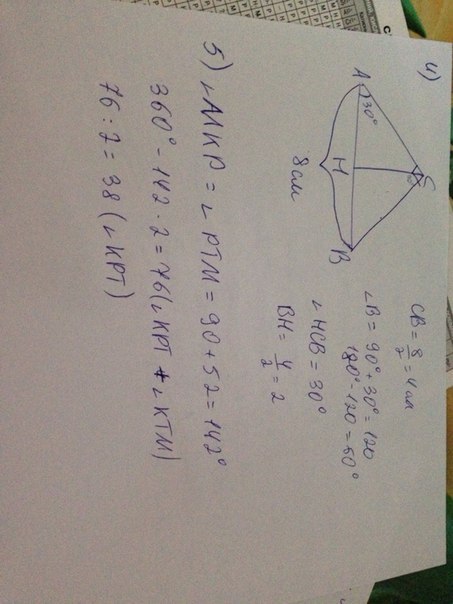 4)
A
30°
H
C
B
8 см
CB = 8/2 = 4 см
∠B = 90° + 30° = 120
180° - 120 = 60°
∠HCB = 30°
BH = 4/2 = 2
5) ∠МКР = ∠РТМ = 90 + 52 = 142°
360° - 142 · 2 = 76 (∠КРТ + ∠КТМ)
76 : 2 = 38 (∠КРТ)